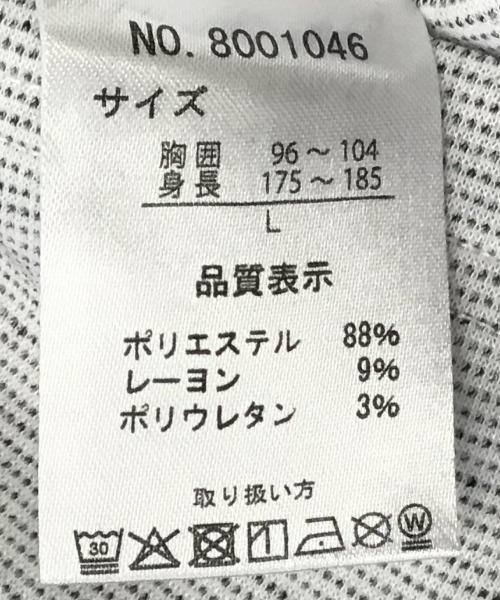 NO. 8001046
サイズ
胸囲 96～104
身長 175～185
L
品質表示
ポリエステル 88%
レーヨン 9%
ポリウレタン 3%
取り扱い方
30 W